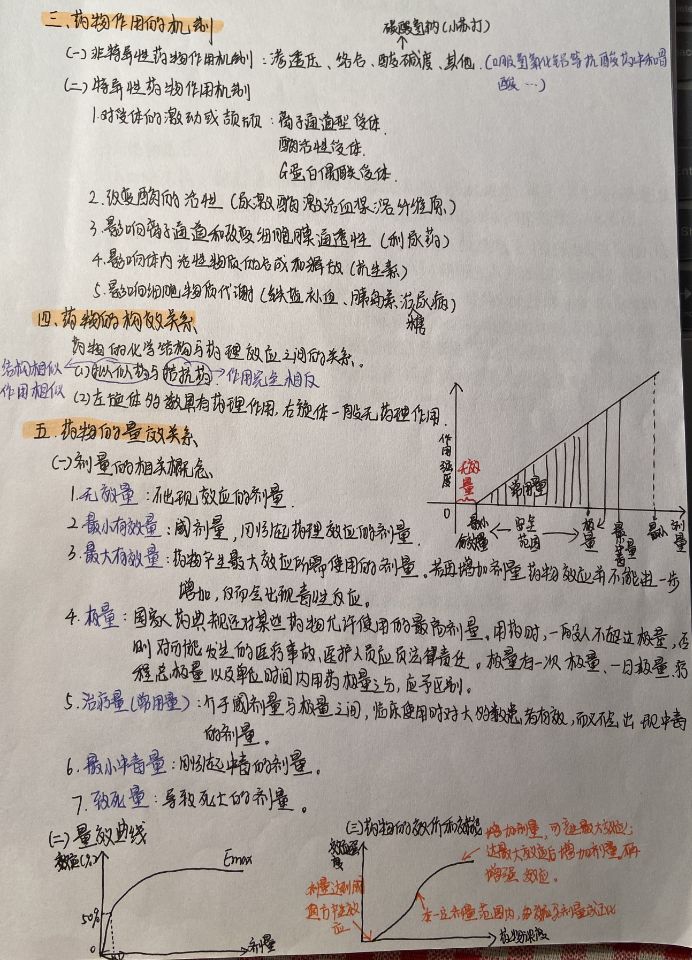 三、药物作用的机制
碳酸氢钠(小苏打)
(一)非特异性药物作用机制：渗透压、络合、酸碱度、其他.(口服氢氧化铝等抗酸药中和胃
酸…)
(二)特异性药物作用机制
1.对受体的激动或颉颃：离子通道型受体.
酶活性受体.
G蛋白偶联受体.
2.改变酶的活性(尿激酶激活血浆溶纤维原)
3.影响离子通道和改变细胞膜通透性(利尿药)
4.影响体内活性物质的合成和释放(抗生素)
5.影响细胞物质代谢(铁盐补血、胰岛素治尿病)
糖
四、药物的构效关系
药物的化学结构与药理效应之间的关系。
结构相似
作用相似
(1)拟似药与拮抗药→作用完全相反
(2)左旋体多数具有药理作用,右旋体一般无药理作用.
五、药物的量效关系
(一)剂量的相关概念
1.无效量：不出现效应的剂量.
2.最小有效量：阈剂量,刚引起药理效应的剂量.
3.最大有效量：药物产生最大效应所需使用的剂量。若再增加剂量药物效应并不能进一步
增加,反而会出现毒性反应。
4.极量：国家药典规定对某些药物允许使用的最高剂量。用药时,一般人不超过极量,否
则对可能发生的医疗事故,医护人员应负法律责任。极量有一次极量、一日极量、疗
程总极量以及单位时间内用药极量之分,应予区别。
5.治疗量(常用量)：介于阈剂量与极量之间,临床使用时对大多数患者有效,而又不会出现中毒
的剂量。
6.最小中毒量：刚引起中毒的剂量。
7.致死量：导致死亡的剂量。
作用强度
无效量
常用量
0
最小有效量
安全范围
极量
最小
量
最小
剂量
(二)量效曲线
效应(%)
Emax
50%
0
剂量
(三)药物的效价和效能
效应强度
增加剂量,可
达最大效应后增加剂量不再
增强效应。
剂量达到阈值方产生效应
在一定剂量范围内,与剂量成正比
药物浓度